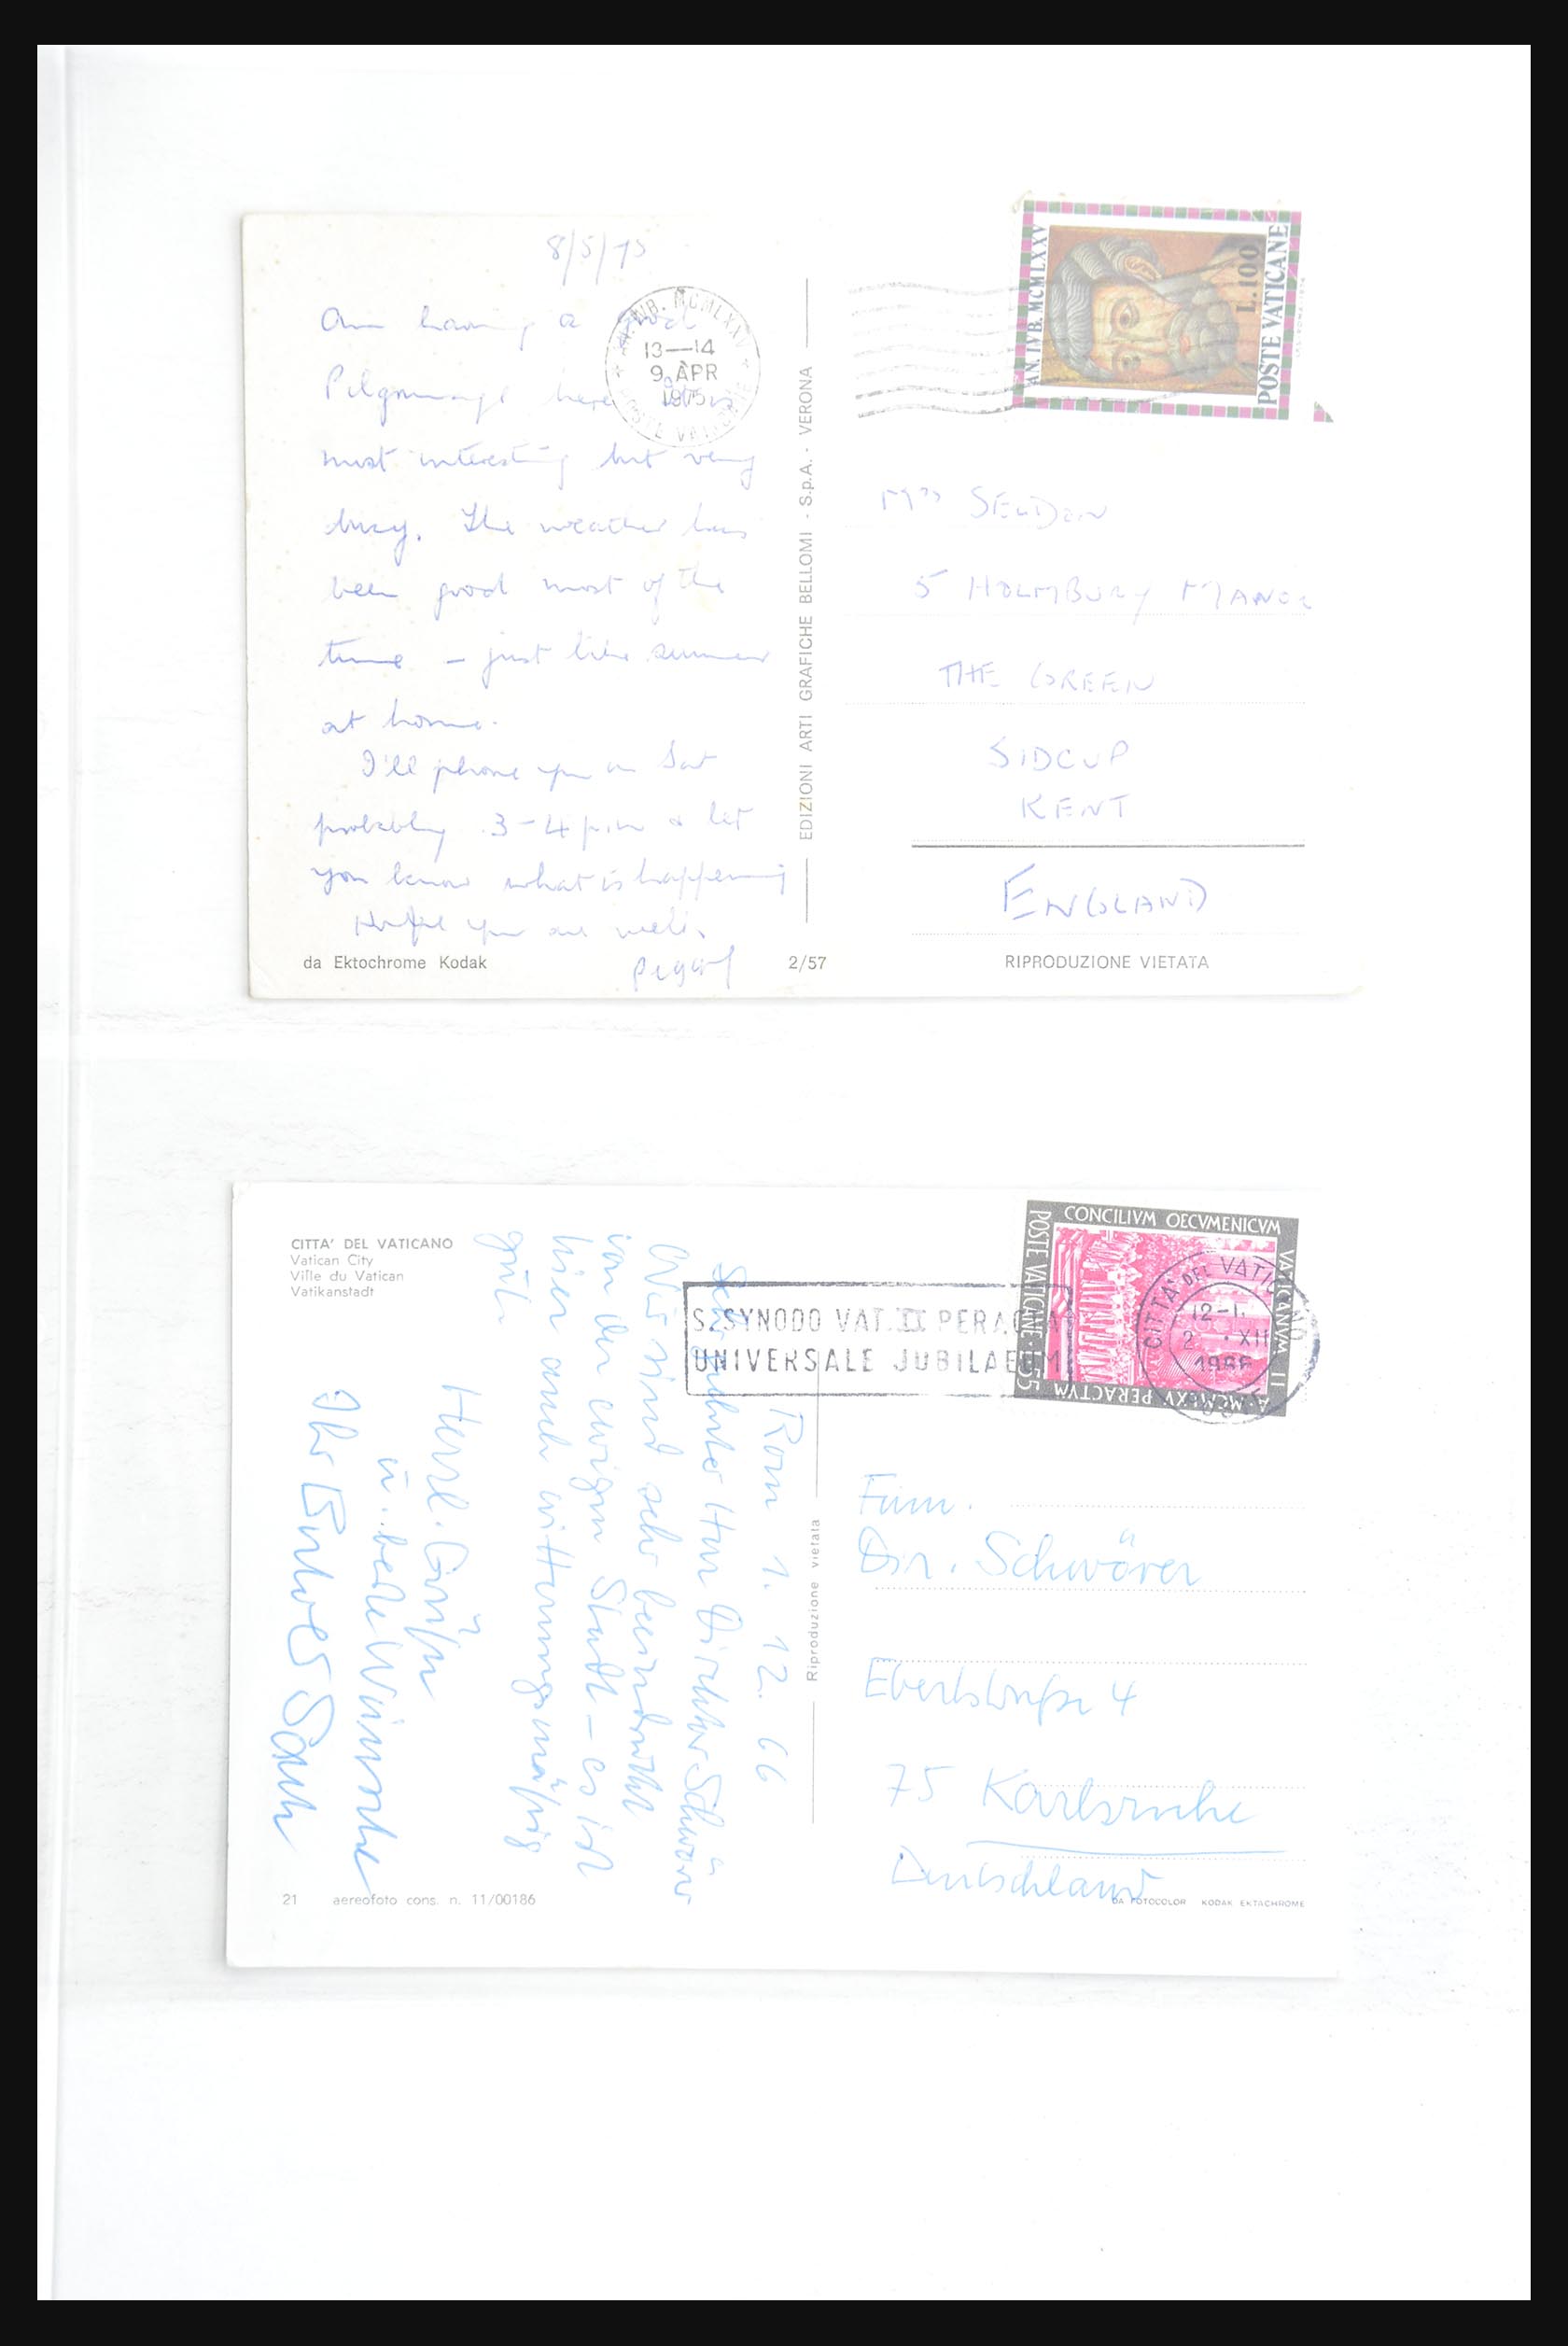 8/5/75
Am having a good
Pilgrimage here
most interesting but very
busy. The weather has
been good most of the
time – just like summer
at home.
I'll phone you on Sat
probably 3-4 p.m & let
you know what is happening
Hope you are well.
da Ektochrome Kodak
2/57
AN. IVB. MCMLXXV
13—14
9 APR
1975
POSTE VATICANE
EDIZIONI ARTI GRAFICHE BELLOMI - S.p.A. - VERONA
AN. IVB. MCMLXXV
L.100
POSTE VATICANE
Mrs SELDON
5 HOLMBURY MANOR
THE GREEN
SIDCUP
KENT
ENGLAND
RIPRODUZIONE VIETATA
CITTA' DEL VATICANO
Vatican City
Ville du Vatican
Vatikanstadt
S. SYNODO VAT. II PERACTA
UNIVERSALE JUBILAEUM
CONCILIVM OECVMENICVM
VATICANVM II
A · MCMLXV PERACTVM
POSTE VATICANE · 55
CITTA' DEL VATICANO
12-1
2 · XII
1966
Rom 1. 12. 66
Sehr geehrter Herr Direktor Schwörer
Wir sind sehr beeindruckt
von der ewigen Stadt – es ist
hier auch witterungsmäßig
Herzl. Grüße
u. beste Wünsche
Ihr
Riproduzione vietata
Fam.
Dir. Schwörer
Ebertstraße 4
75 Karlsruhe
Deutschland
21 aereofoto cons. n. 11/00186
DA FOTOCOLOR KODAK EKTACHROME